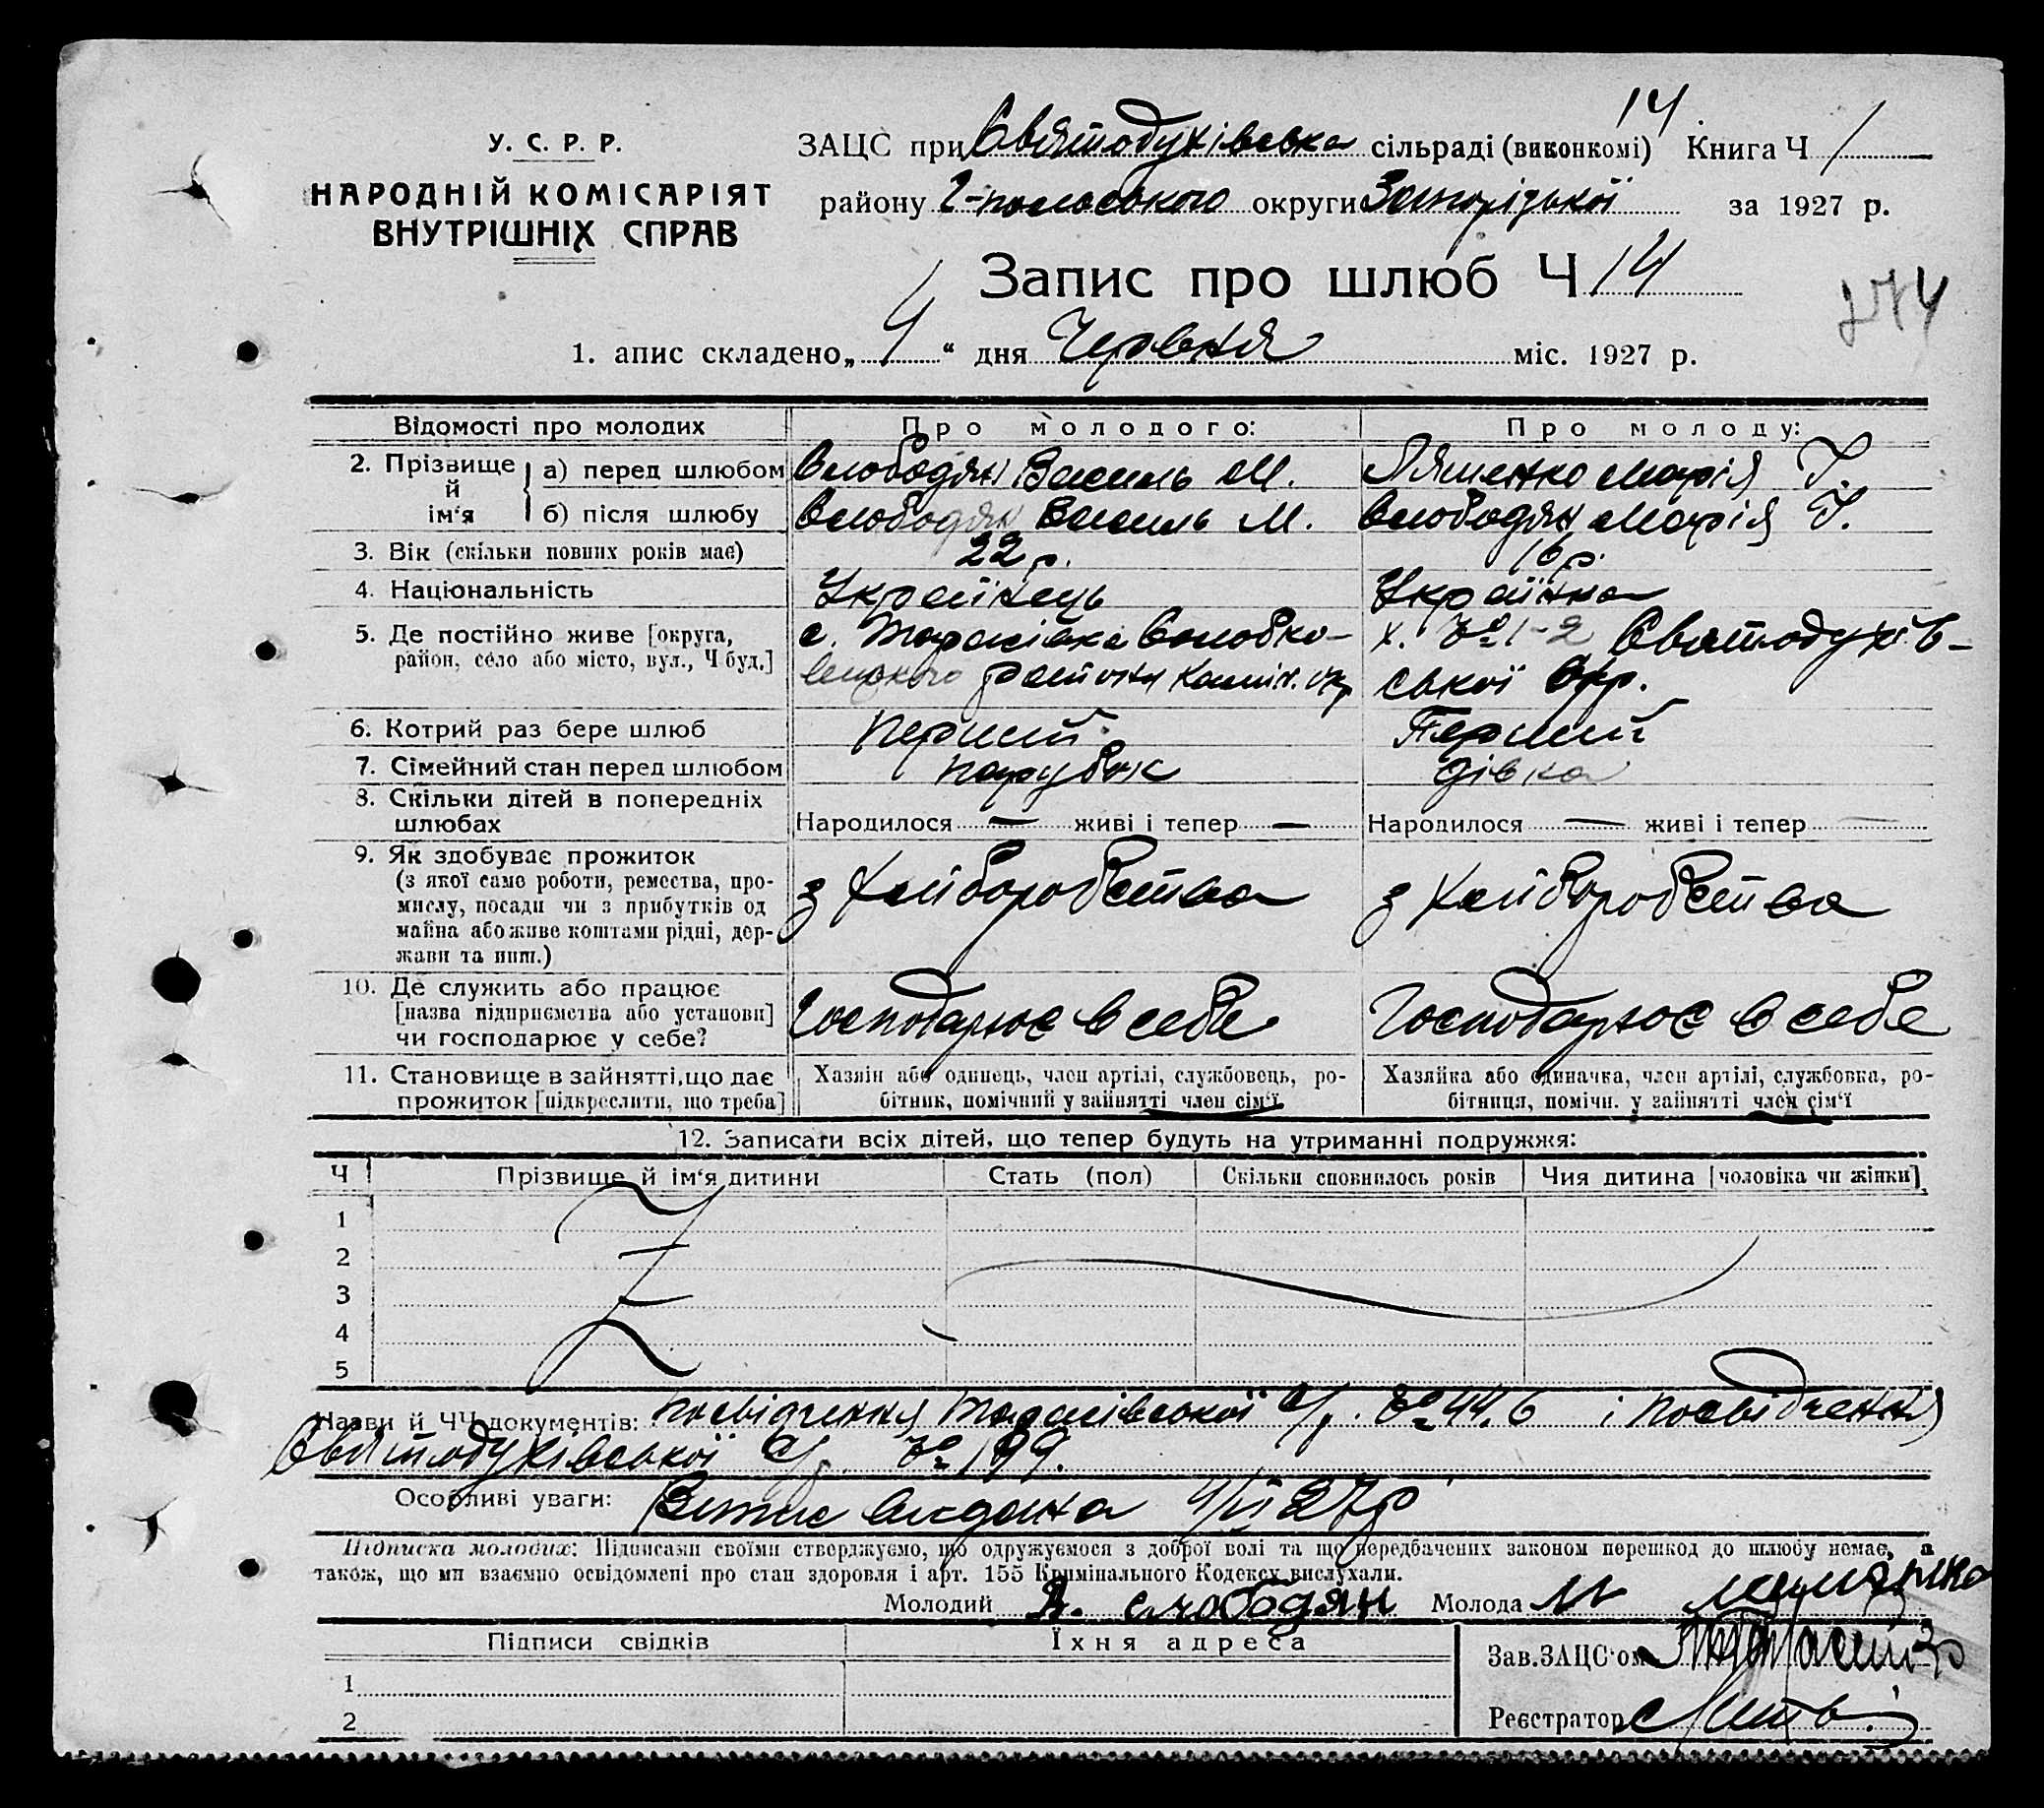 У. С. Р. Р.
НАРОДНІЙ КОМІСАРІЯТ
ВНУТРІШНІХ СПРАВ
14
ЗАЦС при Святодухівська сільраді (виконкомі) Книга Ч 1
району округи Запорізької за 1927 р.
Запис про шлюб Ч 14
1. апис складено „ 4 “ дня Червня міс. 1927 р.
Відомості про молодих Про молодого: Про молоду:
2. Прізвище й ім‘я
а) перед шлюбом Слободян Василь М. Ляшенко Марія Г.
б) після шлюбу Слободян Василь М. Слободян Марія Г.
3. Вік (скільки повних років має) 22 р. 16 р.
4. Національність Українець Українка
5. Де постійно живе [округа, район, село або місто, вул., Ч буд.]
с. Тарасівка
району
х. № 1-2 Святодухів-
ської
6. Котрий раз бере шлюб Перший Перший
7. Сімейний стан перед шлюбом парубок дівка
8. Скільки дітей в попередніх шлюбах Народилося — живі і тепер — Народилося — живі і тепер —
9. Як здобуває прожиток
(з якої само роботи, ремества, про-
мислу, посади чи з прибутків од
майна або живе коштами рідні, дер-
жави та инш.)
з хліборобства з хліборобства
10. Де служить або працює
[назва підприємства або установи]
чи господарює у себе?
Господарює в себе Господарює в себе
11. Становище в зайнятті, що дає
прожиток [підкреслити, що треба]
Хазяїн або одинець, член артілі, службовець, ро-
бітник, помічний у зайнятті член сім‘ї
Хазяйка або одиначка, член артілі, службовка, ро-
бітниця, помічн. у зайнятті член сім‘ї
12. Записати всіх дітей, що тепер будуть на утриманні подружжя:
Ч Прізвище й ім‘я дитини Стать (пол) Скільки сповнилось років Чия дитина [чоловіка чи жінки]
1
2
3
4
5
Назви й ЧЧ документів: посвідчення Тарасівської с/р. № 446 і посвідчення
Святодухівської с/р № 199.
Особливі уваги: 4/VI 27р
Підписка молодих: Підписами своїми стверджуємо, що одружуємося з доброї волі та що передбачених законом перешкод до шлюбу немає, а
також, що ми взаємно освідомлені про стан здоровля і арт. 155 Кримінального Кодексу вислухали.
Молодий В. Слободян Молода М
Підписи свідків Їхня адреса
Зав. ЗАЦС‘ом
1
2
Реєстратор